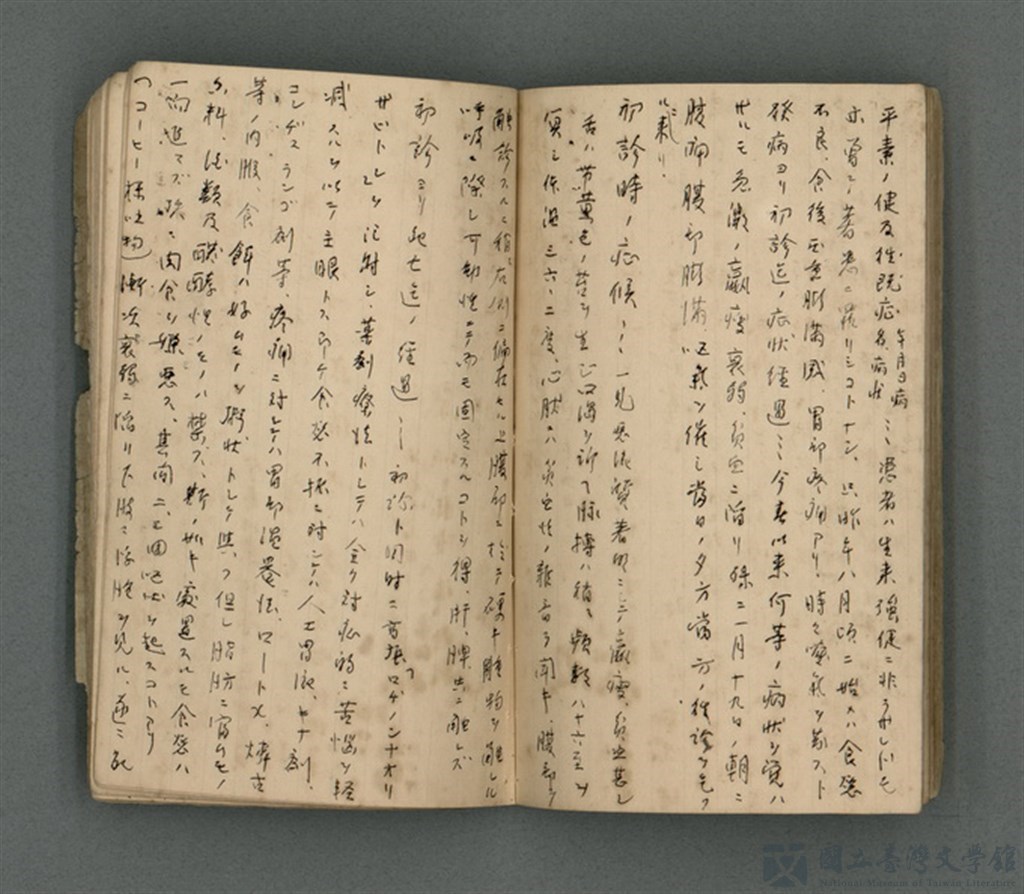 平素ノ健及性既症名病状
年月日病
…患者ハ生来強健ニ非ラザレドモ
亦曾テ著患ニ罹リシコトナシ、只昨年八月頃ニ始メハ食慾
不良、食後至重膨満感、胃部疼痛アリ、時々噯気ヲ発スト
発病ヨリ初診迄ノ症状経過…今春以来何等ノ病状ヲ覚ハ
ザルモ急激ノ羸痩衰弱、貧血ニ陥リ 二月十九日ノ朝ニ
腹痛腹部膨満、 ヲ催シ当日ノ夕方当方ノ往診ヲモフ
ル、
初診時ノ症候…一見悪液質著明ニシテ羸痩、貧血甚シ
舌ハ帯黄色ノ苔ヲ生ジ口渇ヲ訴ヘ脉搏ハ稍々頻数八十六至ヲ
算シ体温三六、二度、心肺ハ貧血性ノ雑音ヲ聞キ、腹部ヲ
触診スルニ稍々右側ニ偏在セル上腹部ニ於テ硬キ腫物ヲ触レル
呼吸ニ際シ可動性ニテ而モ固定スルコトヲ得、肝、脾共ニ触レズ
初診ヨリ死亡迄ノ経過…初診ト同時ニ 「ロヂノンナオリ
ザビトレヲ注射シ、薬剤療法トシテハ全ク対症的ニ苦悩ヲ軽
減スルヲ以テ主眼トス即チ食慾不振ニ対シテハ人工胃液、キナ剤、
コンヂスランゴ剤等、疼痛ニ対シテハ胃部温罨法、ロートメ、燐古
等ノ内服、食餌ハ好ムモノヲ粥状トシテ与フ但シ脂肪ニ富ムモノ
香料、酒類及醗酵性ノモノハ禁ズ、斯ノ如キ処置スルモ食慾ハ
一向進マズ殊ニ肉食ヲ嫌悪ス、其間ニモ 回嘔吐ヲ起スコトアリ
(コーヒー様吐物)漸次衰弱ニ陥リ下肢ニ浮腫ヲ見ル、遂ニ死
國立臺灣文学館
National Museum of Taiwan Literature